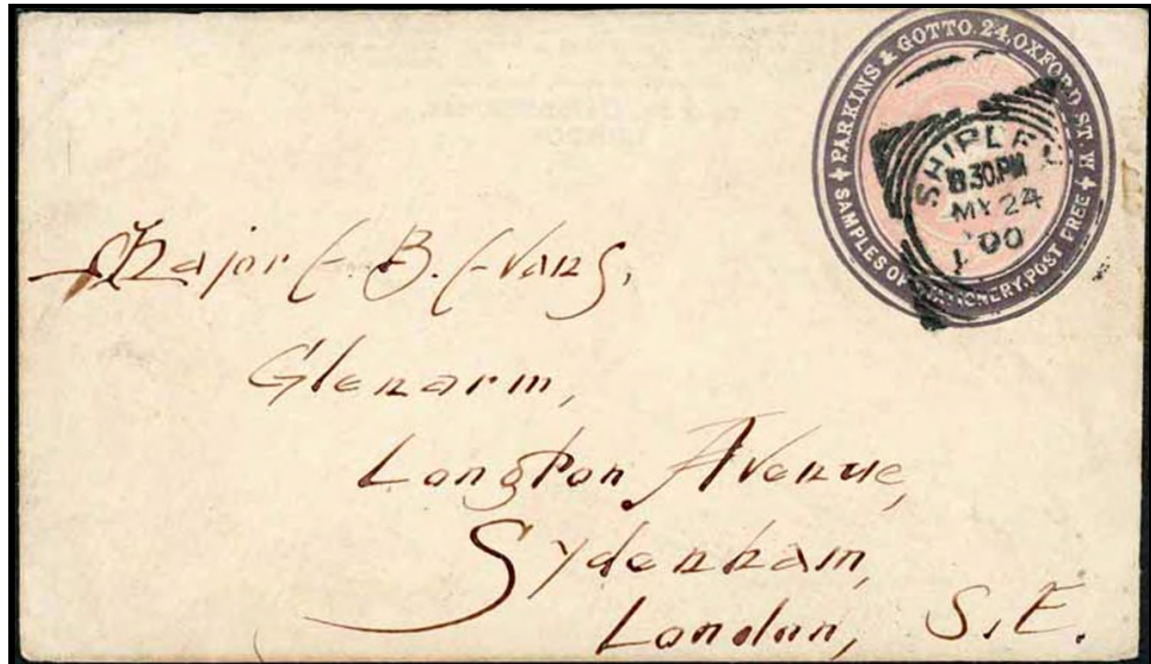 PARKINS & GOTTO. 24, OXFORD ST. W
SAMPLES OF STATIONERY, POST FREE
SHIPLEY
8.30PM
MY 24
00
Major E. B. Evans,
Glenarm,
Longton Avenue,
Sydenham,
London, S.E.